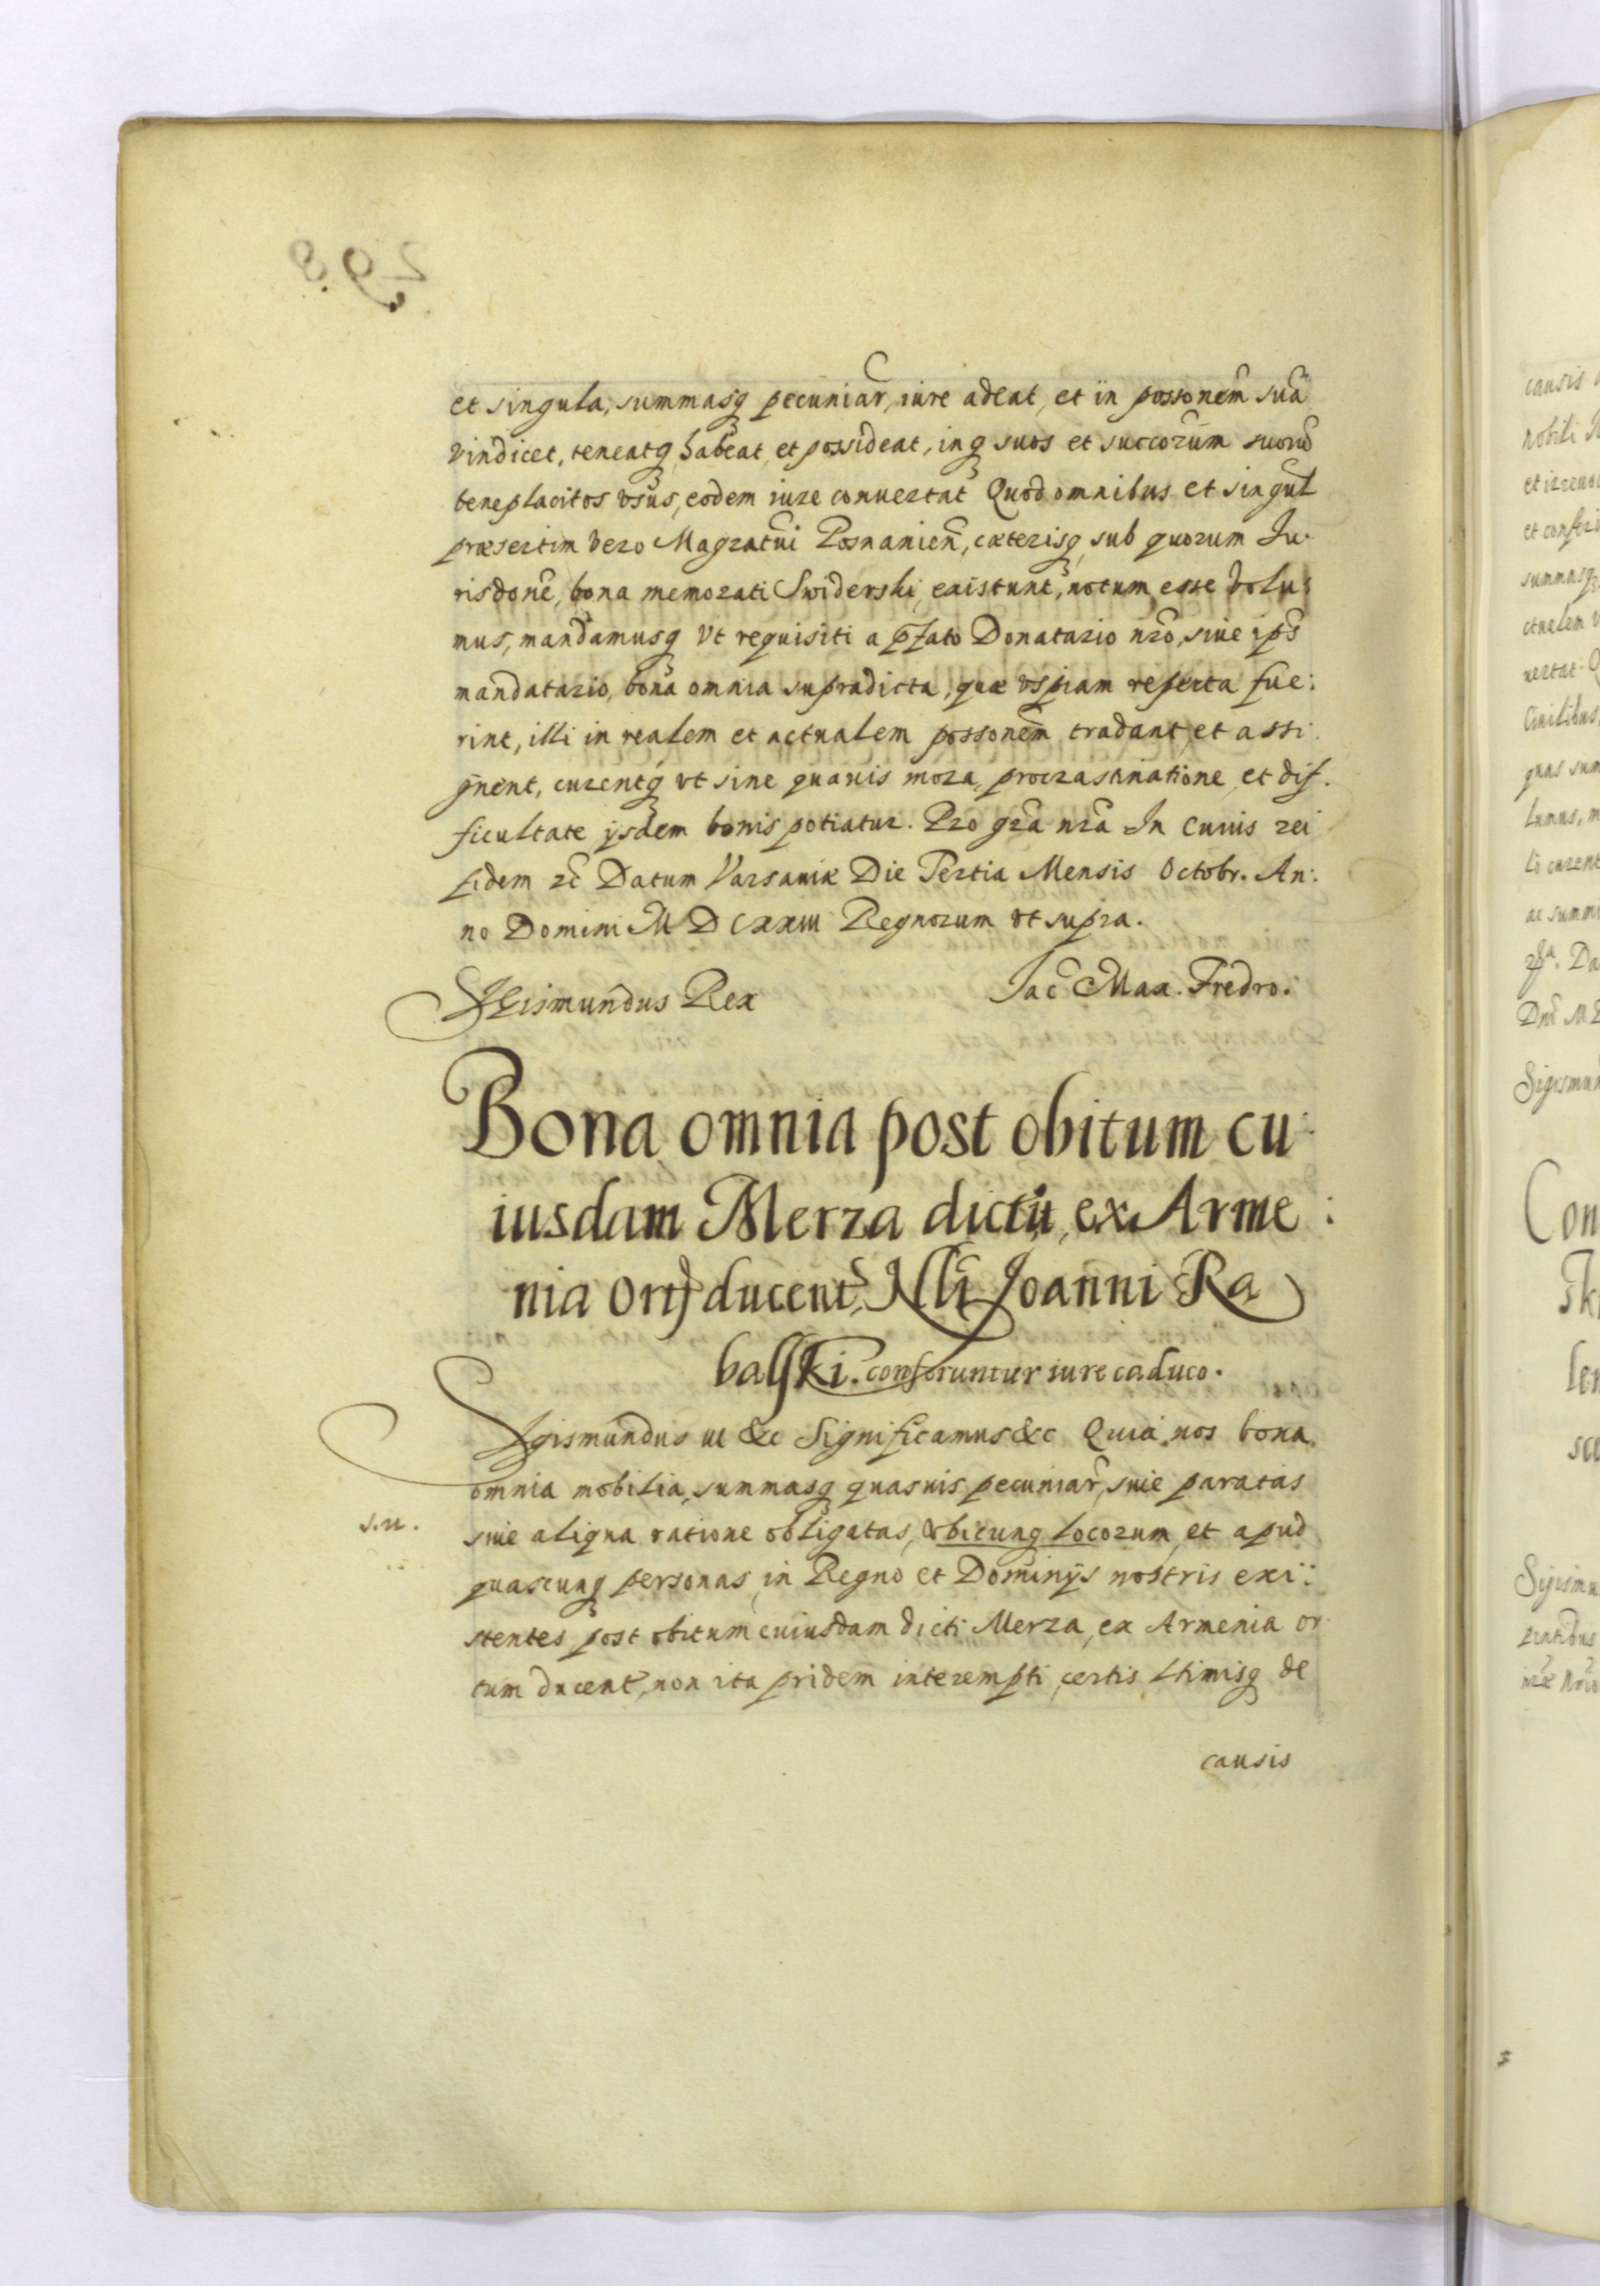 et singula, summasq pecuniar, iure adeat, et in possonem sua
vindicet, teneatq, habeat, et possideat, inq suos et succorum suorũ
beneplacitos vsus, eodem iure conuertat Quod omnibus et singul
præsertim vero Magratui Posnanien, cæterisq, sub quorum Ju-
risdone, bona memorati Swiderski, existunt, notum esse volu:
mus, mandamusq vt requisiti a pfato Donatario nro, siue ips
mandatario, bona omnia supradicta, quæ vspiam reperta fue:
rint, illi in realem et actualem possonem tradant, et assi
gnent, curentq vt sine quauis mora, procrastinatione, et dif-
ficultate ijsdem bonis potiatur. Pro gra nra In cuius rei
fidem &c Datum Varsauiæ Die Tertia Mensis Octobr. An:
no Domini M D Cxxiii Regnorum vt supra.
Sigismundus Rex
Jac Max. Fredro.
Bona omnia post obitum cu
iusdam Merza dicti, ex Arme:
nia ort ducent, Nlli Joanni Ra
balski. conferuntur iure caduco.
Sigismundus iii &c Significamus &c Quia nos bona
omnia mobilia, summasq quasuis pecuniar, siue paratas
s.n.
siue aliqua ratione obligatas, vbicunq locorum, et apud
quascunq personas, in Regno et Dominijs nostris exi:
stentes post obitum cuiusdam dicti Merza, ex Armenia or
tum ducent, non ita pridem interempti, certis Ltimisq de
causis